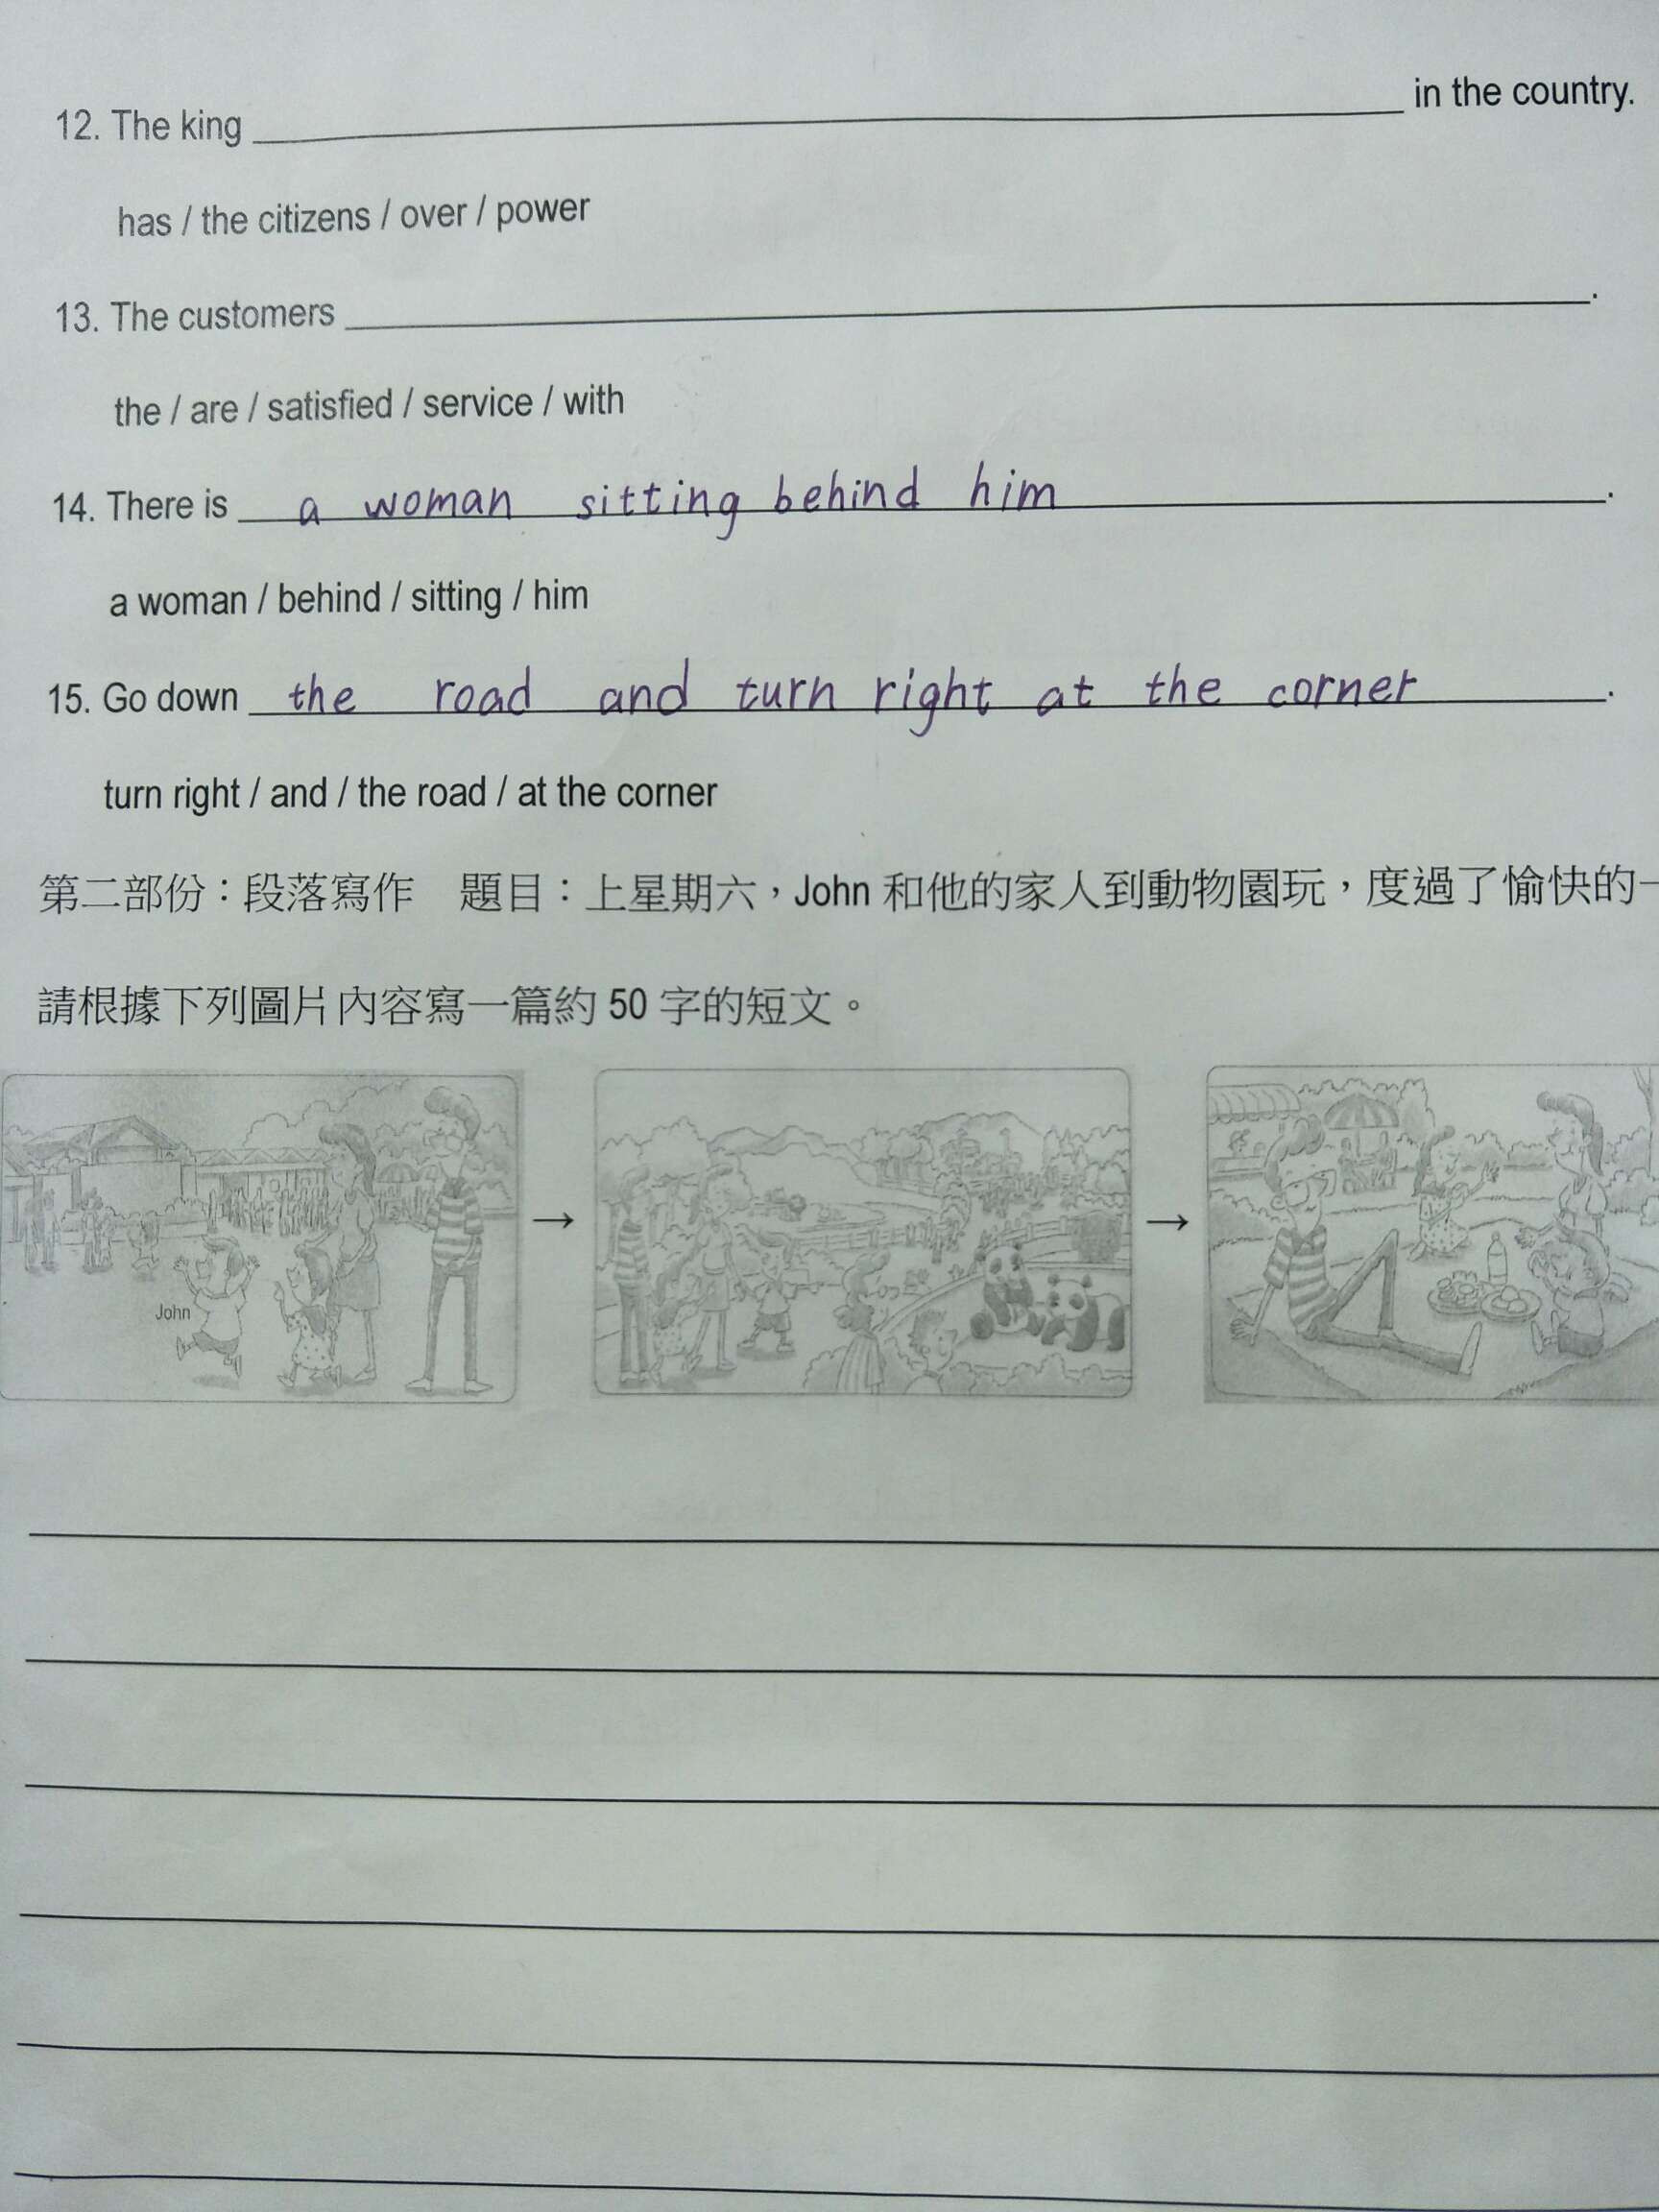 12. The king ______ in the country.
has / the citizens / over / power
13. The customers ______.
the / are / satisfied / service / with
14. There is a woman sitting behind him.
a woman / behind / sitting / him
15. Go down the road and turn right at the corner.
turn right / and / the road / at the corner
第二部份：段落寫作 題目：上星期六，John 和他的家人到動物園玩，度過了愉快的一
請根據下列圖片內容寫一篇約 50 字的短文。
→ →
John